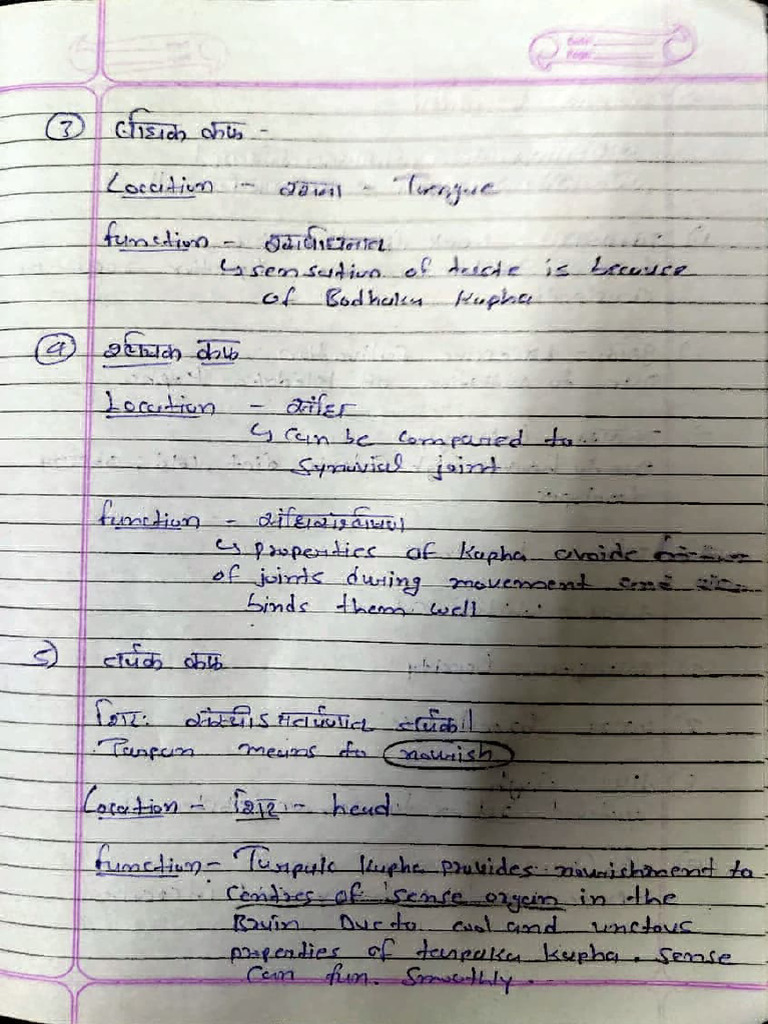 ③ बोधक कफ -
Location - रसना - Tongue
function -
↳ sensation of taste is because
of Bodhaka Kapha
④ श्लेषक कफ
Location - संधि
↳ can be compared to
Synovial joint
function -
↳ properties of Kapha avoids
of joints during movement and
binds them well
5) तर्पक कफ
शिरः तर्पक।
Tarpan means to nourish
Location - शिर - head
function - Tarpak Kapha provides nourishment to
centres of sense organ in the
Brain Due to cool and unctous
properties of tarpaka kapha. sense
Can fun. Smoothly.